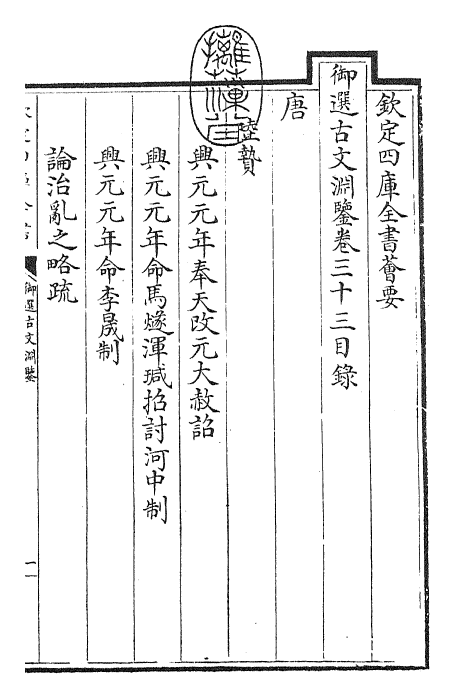 欽定四庫全書薈要
御選古文淵鑒卷三十三目錄
唐
摛藻堂
陸贄
興元元年奉天改元大赦詔
興元元年命馬燧渾瑊招討河中制
興元元年命李晟制
論治亂之略疏
御選古文淵鑒
一